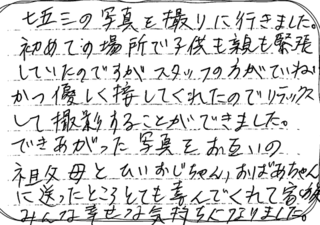 七五三の写真を撮りに行きました。
初めての場所で子供も親も緊張
していたのですがスタッフの方がていね
かつ優しく接してくれたのでリラックス
して撮影することができました。
できあがった写真をお互いの
祖父母とひいおじちゃん、おばあちゃん
に送ったところとても喜んでくれて家族
みんな幸せな気持ちになりました。